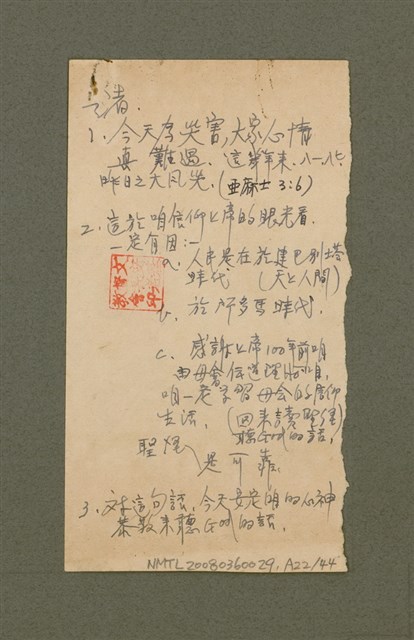 1. 今天多災害,大家心情
真難過。這幾年來、八一、八六
昨日之大風災。(亞麻士 3:6)
2. 這於咱信仰上席的眼光看.
一定有因:—
a. 人民是在於建巴別塔
時代 (天と人間)
b. 於所多馬時代.
c. 感謝上席100年前咱
由母會傳道理
咱一起學習母會的信仰
生活. (因來讀聖經)
聽 God 的話.
聖經
是可靠
3. 對這句話,今天
恭敬來聽 God 的話.
NMTL20080360029, A22/44